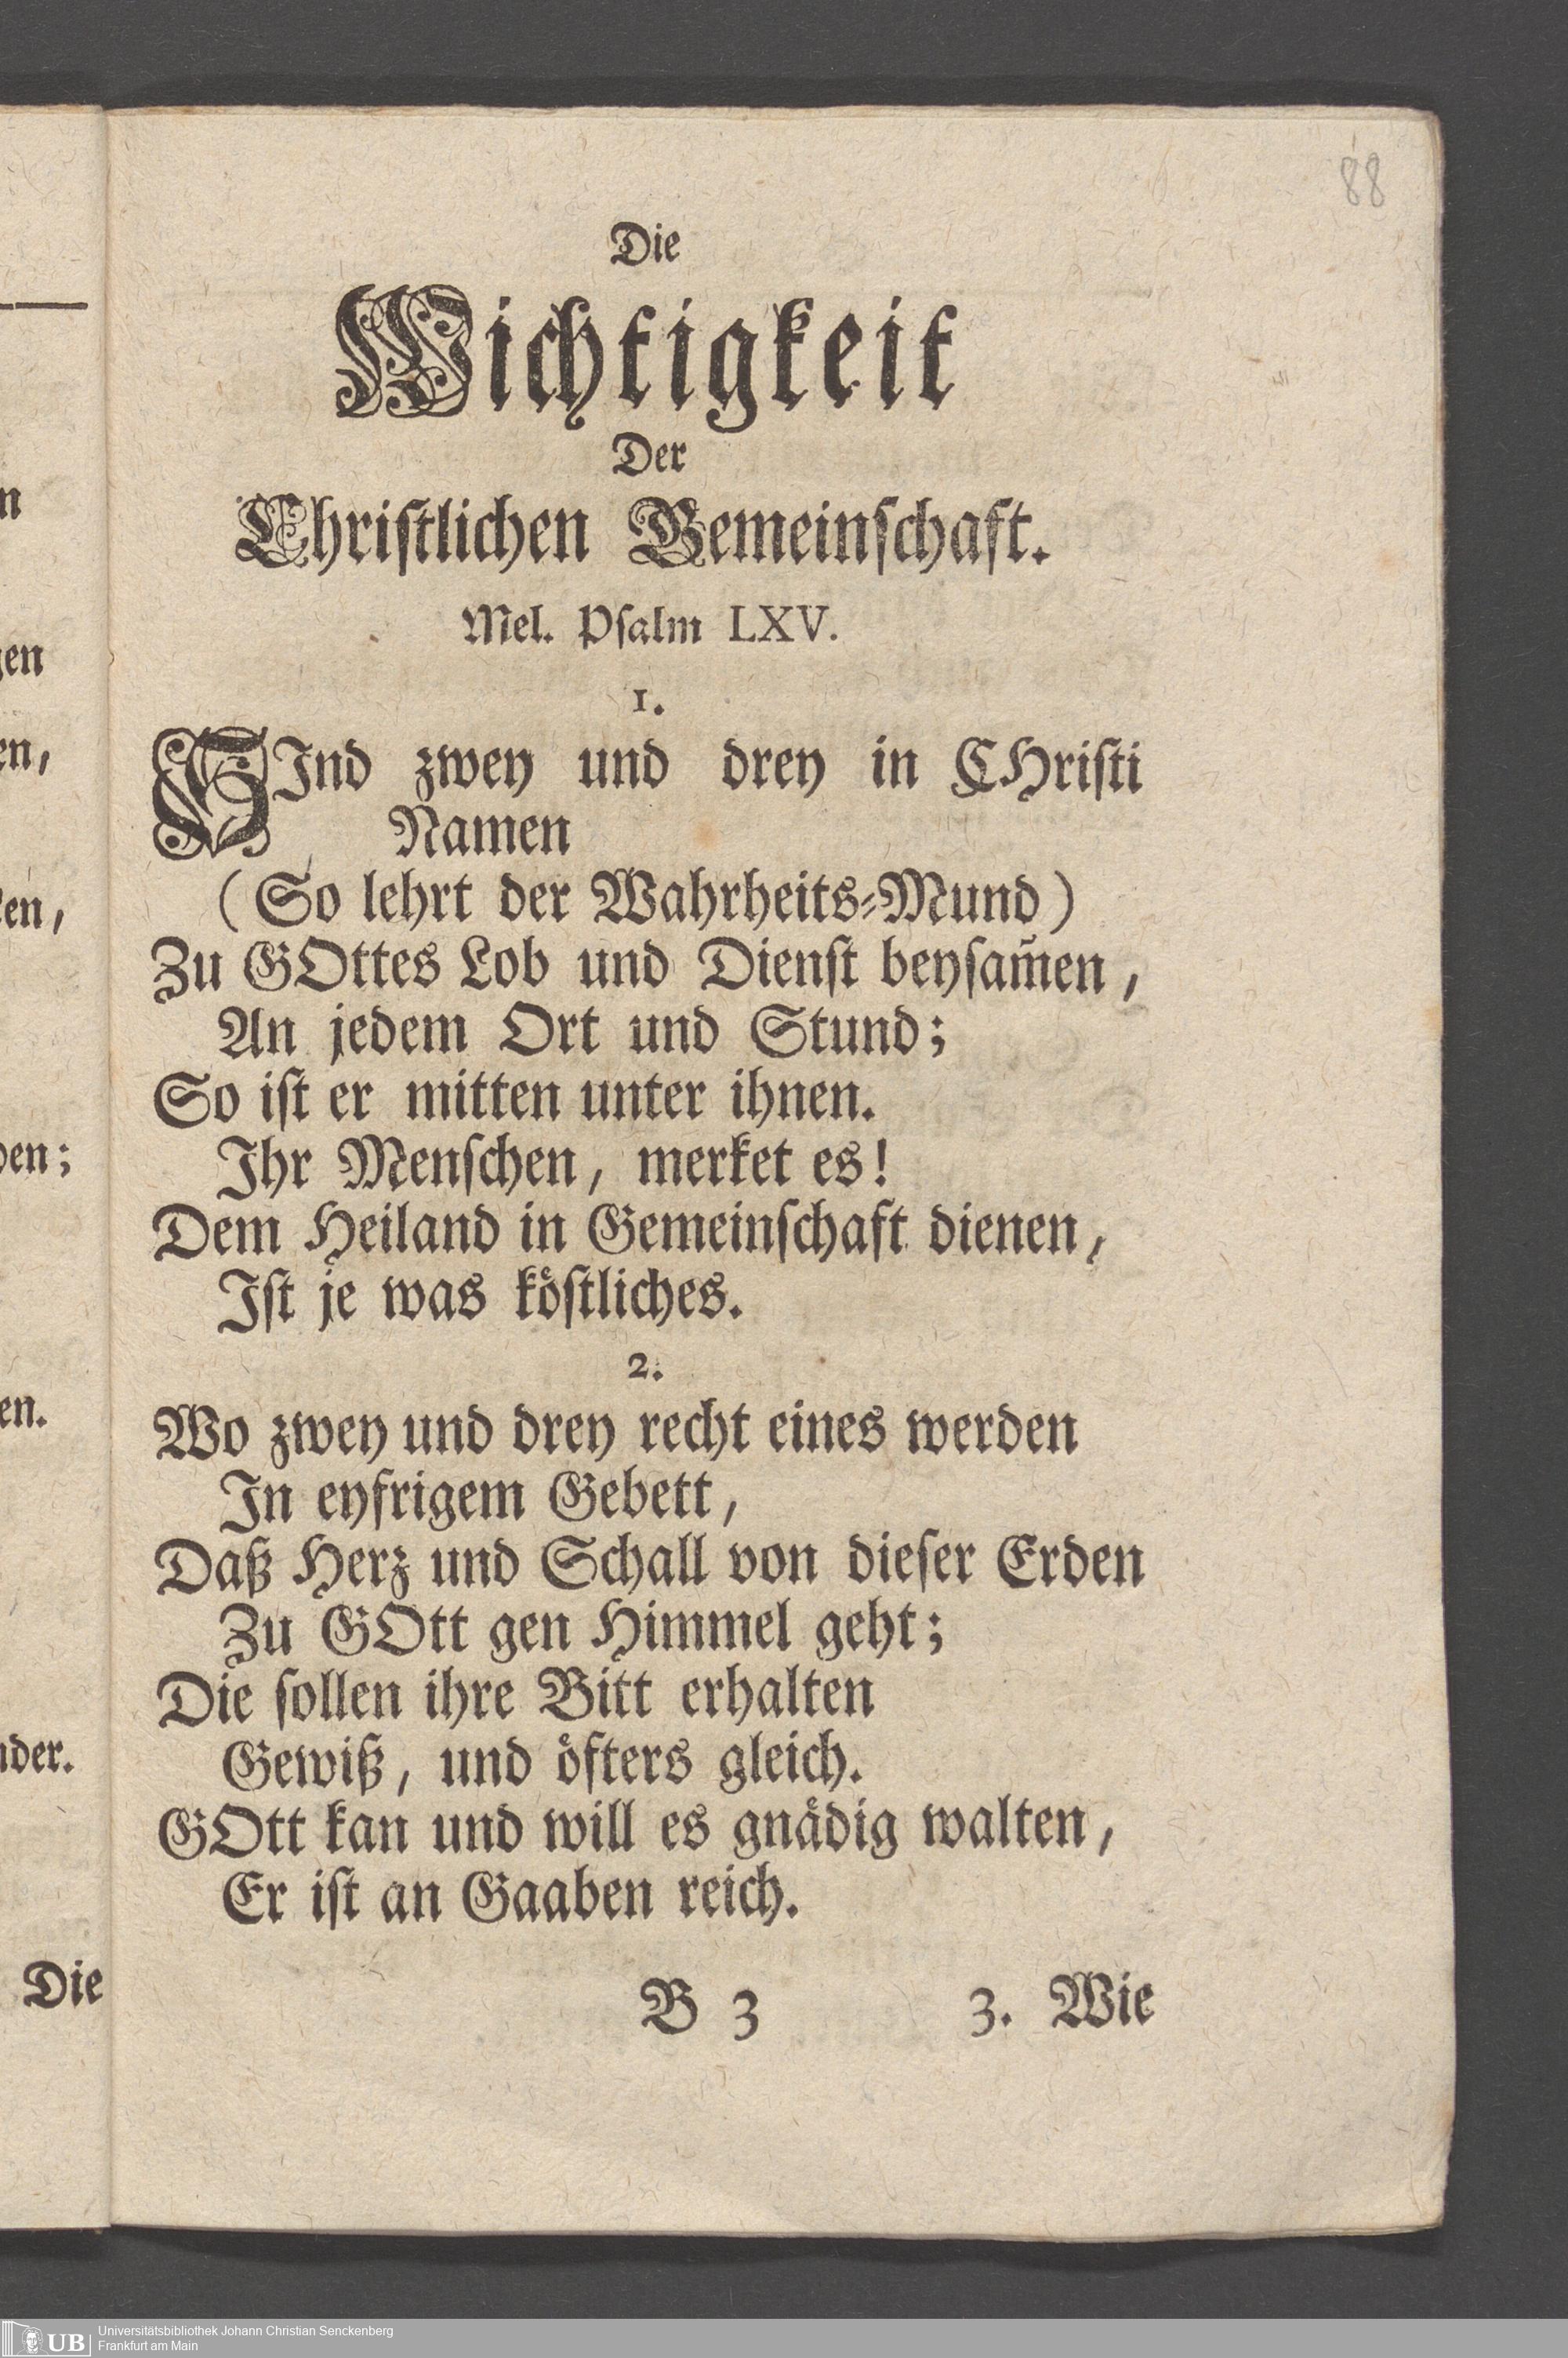 88
Die
Wichtigkeit
Der
Chriſtlichen Gemeinſchaft.
Mel. Pſalm LXV.
1.
SInd zwey und drey in CHriſti
Namen
(So lehrt der Wahrheits⸗Mund)
Zu GOttes Lob und Dienſt beyſam̃en,
An jedem Ort und Stund;
So iſt er mitten unter ihnen.
Ihr Menſchen, merket es!
Dem Heiland in Gemeinſchaft dienen,
Iſt je was koͤſtliches.
2.
Wo zwey und drey recht eines werden
In eyfrigem Gebett,
Daß Herz und Schall von dieſer Erden
Zu GOtt gen Himmel geht;
Die ſollen ihre Bitt erhalten
Gewiß, und oͤfters gleich.
GOtt kan und will es gnaͤdig walten,
Er iſt an Gaaben reich.
B 3 3. Wie
Die
UB Universitätsbibliothek Johann Christian Senckenberg
Frankfurt am Main